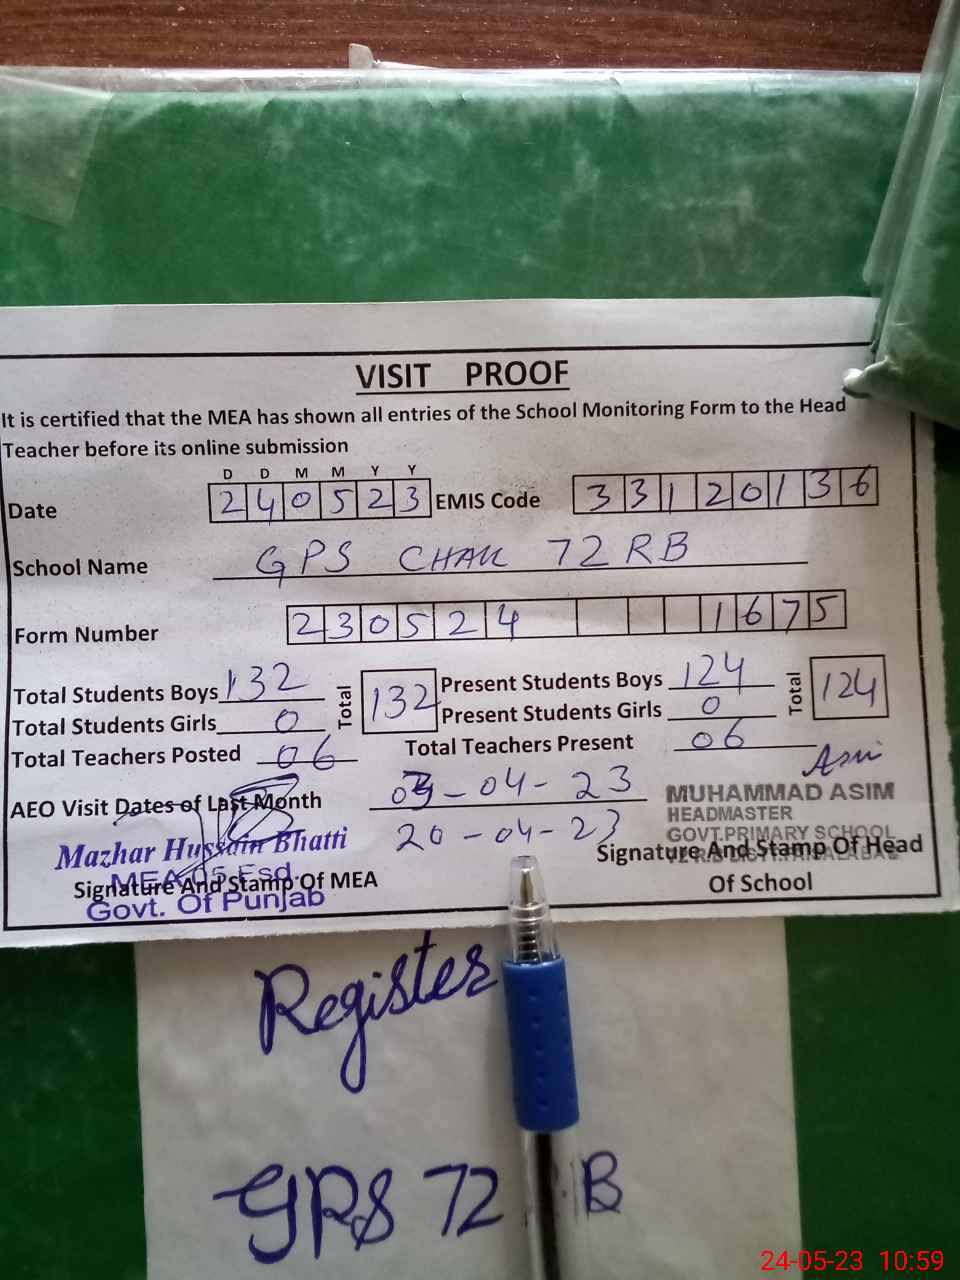 VISIT PROOF
It is certified that the MEA has shown all entries of the School Monitoring Form to the Head
Teacher before its online submission
D D M M Y Y
Date 240523 EMIS Code 33120136
School Name GPS CHAK 72 RB
Form Number 230524 1675
Total Students Boys 132 Total 132 Present Students Boys 124 Total 124
Total Students Girls 0 Present Students Girls 0
Total Teachers Posted 06 Total Teachers Present 06
Asim
AEO Visit Dates of Last Month -04-23
20-04-23
MUHAMMAD ASIM
HEADMASTER
GOVT.PRIMARY SCHOOL
Mazhar Hussain Bhatti
MEA 05 Fsd.
Govt. Of Punjab
Signature And Stamp Of MEA
Signature And Stamp Of Head
Of School
Register
GPS 72 B
24-05-23 10:59